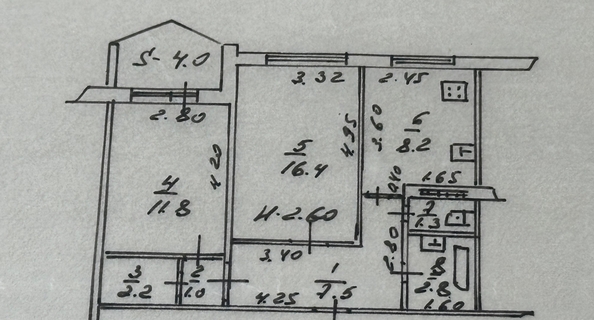 S-4.0
3.32
2.45
2.80
4.20
4.95
3.60
5
16.4
6
8.2
4
11.8
H-2.60
1.65
7
1.3
2.80
3.40
3
2.2
2
1.0
1
7.5
8
2.8
4.25
1.60